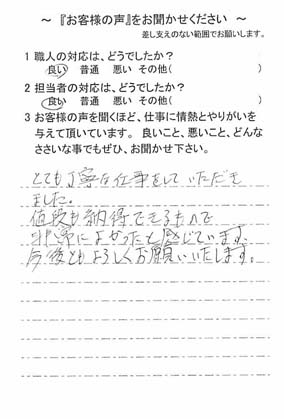 ～ 『お客様の声』をお聞かせください ～
差し支えのない範囲でお願いします。
1 職人の対応は、どうでしたか？
良い 普通 悪い その他( )
2 担当者の対応は、どうでしたか？
良い 普通 悪い その他( )
3 お客様の声を聞くほど、仕事に情熱とやりがいを
与えて頂いています。 良いこと、悪いこと、どんな
ささいな事でもぜひ、お聞かせ下さい。
とても丁寧な仕事をしていただき
ました。
値段も納得できるもので
非常によかったと感じています。
今後ともよろしくお願いいたします。